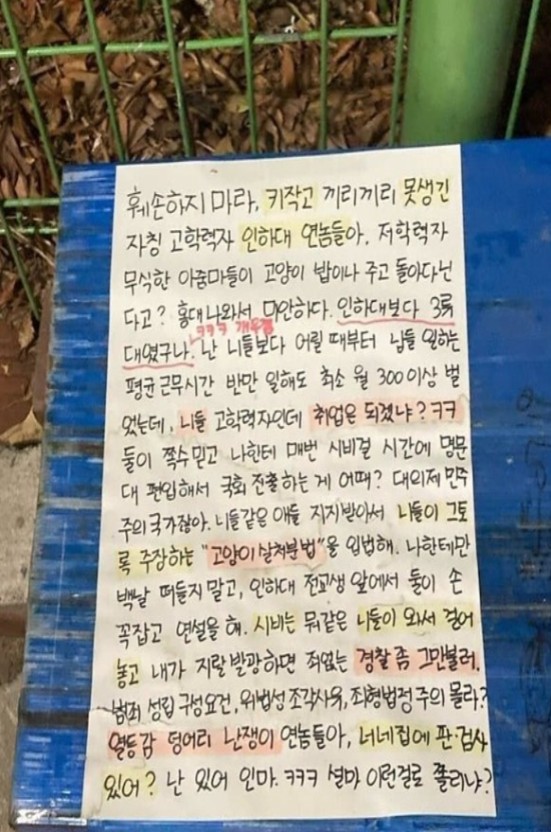 훼손하지 마라, 키작고 끼리끼리 못생긴
자칭 고학력자 인하대 연놈들아. 저학력자
무식한 아줌마들이 고양이 밥이나 주고 돌아다닌
다고? 홍대 나와서 미안하다. 인하대보다 3류
ㅋㅋㅋ 개웃김
대였구나. 난 니들보다 어릴 때부터 님들 일하는
평균 근무시간 반만 일해도 최소 월 300이상 벌
었는데, 니들 고학력자인데 취업은 되겠냐? ㅋㅋ
둘이 쪽수 믿고 나한테 매번 시비걸 시간에 명문
대 편입해서 국회 진출하는 게 어때? 대의제 민주
주의 국가잖아. 니들같은 애들 지지받아서 니들이 그토
록 주장하는 "고양이 살처분법"을 입법해. 나한테만
백날 떠들지 말고, 인하대 전교생 앞에서 둘이 손
꼭잡고 연설을 해. 시비는 뭐같은 니들이 와서 걸어
놓고 내가 지랄발광하면 죄없는 경찰 좀 그만불러.
범죄 성립 구성요건, 위법성 조각사유, 죄형법정주의 몰라?
열등감 덩어리 난쟁이 연놈들아, 너네집에 판·검사
있어? 난 있어 인마. ㅋㅋㅋ 설마 이런걸로 쫄리냐?